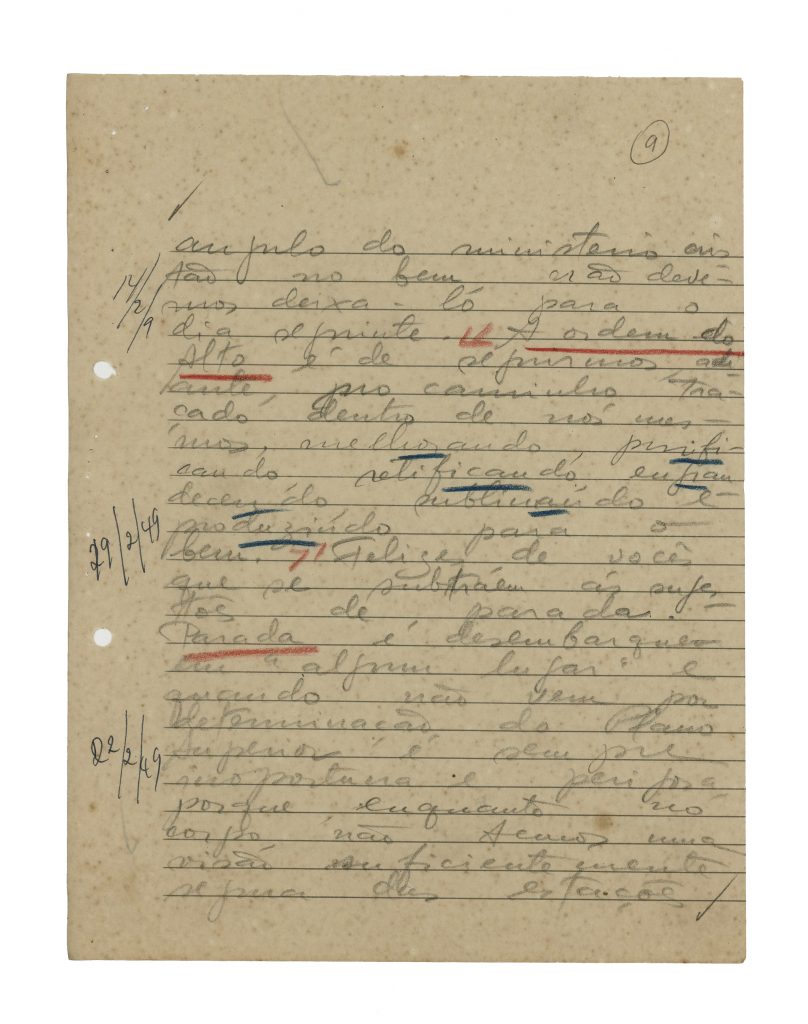 9
angulo do ministerio cris
tão no bem não deve-
14/2/9
mos deixa-ló para o
dia seguinte. "A ordem do
Alto é de seguirmos, adi
ante, pro caminho tra-
cado dentro de nós mes-
mos, melhorando purifi-
cando retificando, engran
decendo sublimando e
29/2/49
produzindo para o
bem." Felizes de vocês
que se subtráem ás suges
tões de parada. -
Parada é desembarque
em "algum lugar" e
quando não vem por
determinação do Plano
22/2/49
Superior é sempre
inoportuna e perigosa
porque enquanto no
corpo não temos uma
visão suficientemente
segura das estações